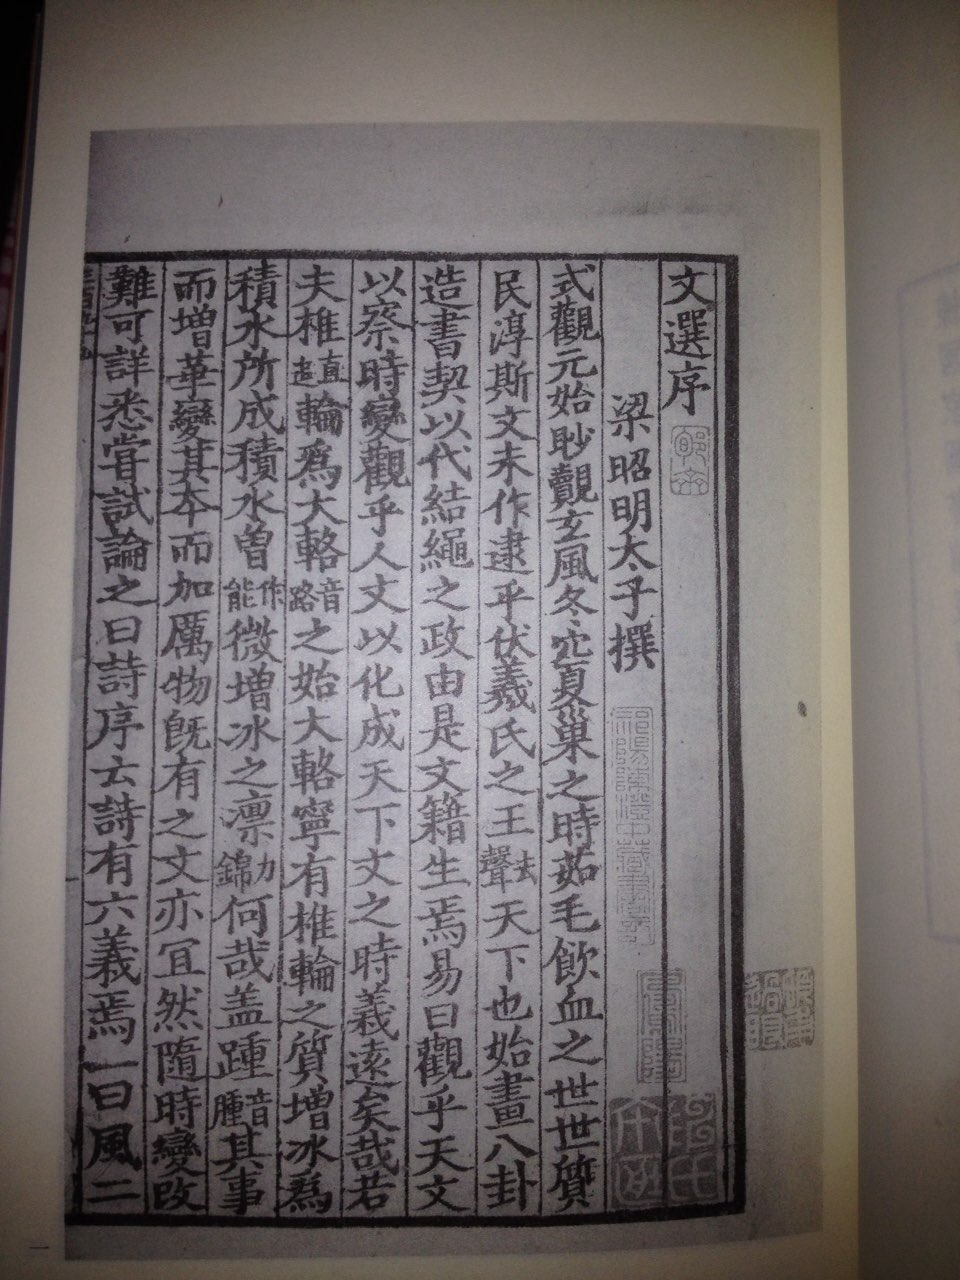 文選序
梁昭明太子撰
式觀元始眇覿玄風冬穴夏巢之時茹毛飲血之世世質
民淳斯文未作逮乎伏羲氏之王去聲天下也始畫八卦
造書契以代結繩之政由是文籍生焉易曰觀乎天文
以察時變觀乎人文以化成天下文之時義遠矣哉若
夫椎直追輪爲大輅音路之始大輅寧有椎輪之質增冰爲
積水所成積水曾作能微增冰之凛力錦何哉盖踵音腫其事
而增華變其夲而加厲物旣有之文亦冝然隨時變改
難可詳悉甞試論之曰詩序云詩有六義焉一曰風二
一